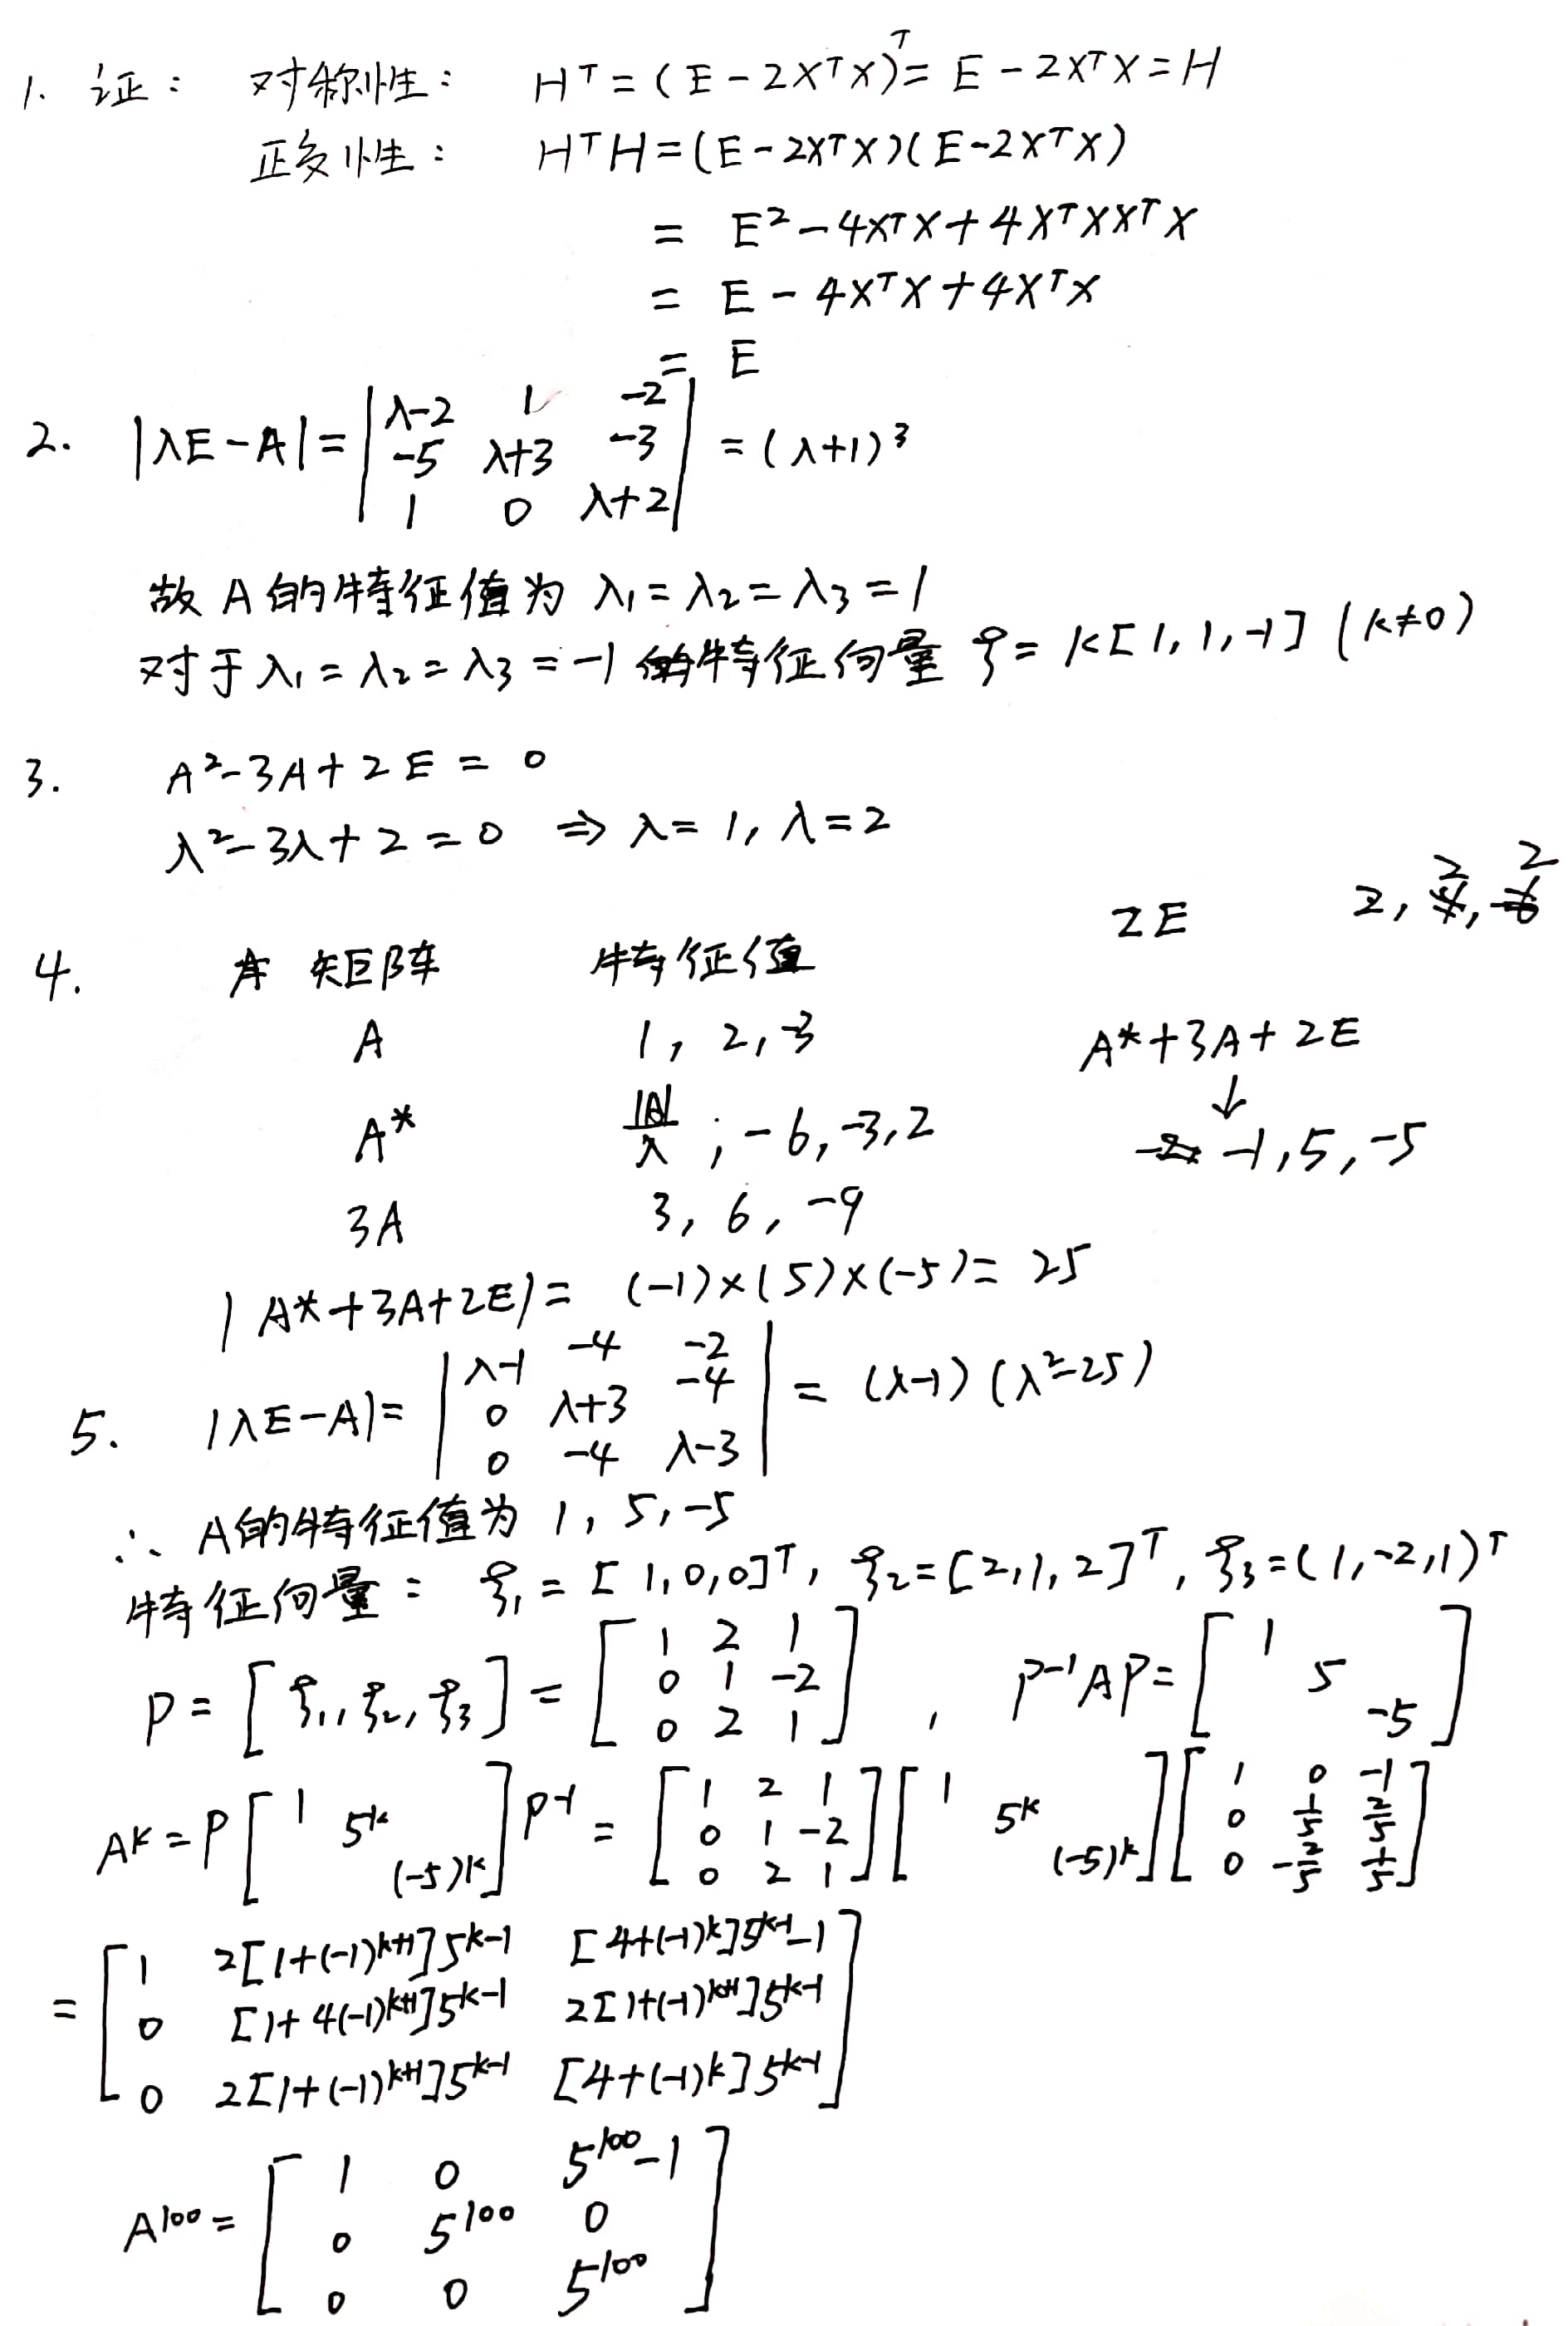 1. 证： 对称性： Hᵀ = (E - 2XᵀX)ᵀ = E - 2XᵀX = H
正交性： HᵀH = (E - 2XᵀX)(E - 2XᵀX)
= E² - 4XᵀX + 4XᵀXXᵀX
= E - 4XᵀX + 4XᵀX
= E
2. |λE - A| = | λ-2 1 -2 |
| -5 λ+3 -3 | = (λ+1)³
| 1 0 λ+2 |
故 A 的特征值为 λ₁ = λ₂ = λ₃ = 1
对于 λ₁ = λ₂ = λ₃ = -1 的特征向量 ξ = k[1, 1, -1] (k≠0)
3. A² - 3A + 2E = 0
λ² - 3λ + 2 = 0 ⇒ λ = 1, λ = 2
2E 2, 2, 2
4. 矩阵 特征值
A 1, 2, -3 A* + 3A + 2E
↓
A* |A|/λ ; -6, -3, 2 -1, 5, -5
3A 3, 6, -9
|A* + 3A + 2E| = (-1)×(5)×(-5) = 25
5. |λE - A| = | λ-1 -4 -2 |
| 0 λ+3 -4 | = (λ-1)(λ²-25)
| 0 -4 λ-3 |
∴ A的特征值为 1, 5, -5
特征向量： ξ₁ = [1, 0, 0]ᵀ, ξ₂ = [2, 1, 2]ᵀ, ξ₃ = (1, -2, 1)ᵀ
P = [ξ₁, ξ₂, ξ₃] = [ 1 2 1 ; 0 1 -2 ; 0 2 1 ] , P⁻¹AP = [ 1 5 -5 ]
Aᵏ = P [ 1 5ᵏ (-5)ᵏ ] P⁻¹ = [ 1 2 1 ; 0 1 -2 ; 0 2 1 ] [ 1 5ᵏ (-5)ᵏ ] [ 1 0 -1 ; 0 1/5 2/5 ; 0 -2/5 1/5 ]
= [ 1 2[1+(-1)ᵏ⁺¹]5ᵏ⁻¹ [4+(-1)ᵏ]5ᵏ⁻¹-1
0 [1+4(-1)ᵏ⁺¹]5ᵏ⁻¹ 2[1+(-1)ᵏ⁺¹]5ᵏ⁻¹
0 2[1+(-1)ᵏ⁺¹]5ᵏ⁻¹ [4+(-1)ᵏ]5ᵏ⁻¹ ]
A¹⁰⁰ = [ 1 0 5¹⁰⁰-1
0 5¹⁰⁰ 0
0 0 5¹⁰⁰ ]